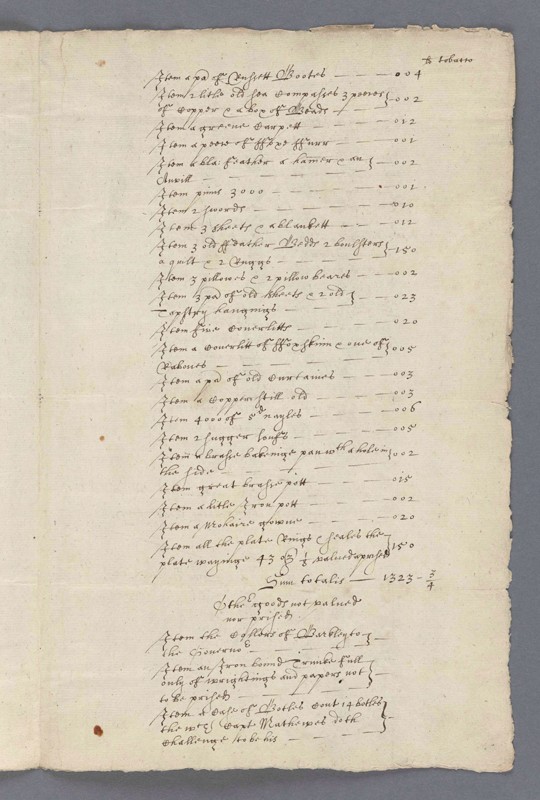 lb tobacco
Item a pa of Russett Bootes — — — 004
Item 2 litle old sea Compasses 3 peeces
of Copper & a box of Beads — — 002
Item a greene Carpett — — — 012
Item a peece of ffoxe ffurr — — 001
Item a bla: feather a hamer & an
Anvill — — — 002
Item pinns 3000 — — — 001
Item 2 swords — — — 010
Item 3 sheets & a blankett — — 012
Item 3 old ffeather Bedds 2 boulsters
a quilt & 2 Ruggs — — — 150
Item 3 pillowes & 2 pillow beares — — 002
Item 3 pa of old sheets & 2 old
Tapstry hangings — — 023
Item five Coverlitts — — — 020
Item a Coverlitt of ffoxskinn & one of
Racones — — — 005
Item a pa of old Curtaines — — 003
Item a Copper still old — — 003
Item 4000 of 5d nayles — — 006
Item 2 sugger loafs — — — 005
Item a brasse bakeinge pan wth a hole in
the side — — — 002
Item great brasse pott — — 015
Item a litle Iron pott — — 002
Item a Mohaire gowne — — — 020
Item all the plate Rings & seales the
plate wayinge 43 oz ½ valued & prised 150
Sum totalis — 1323 - 3/4
Othe goods not valued
nor prised
Item the Collers of Barkleyto
the Governor — —
Item an Iron bound Trunke full
only of wrightings and papers not
to be prised — — —
Item a Case of Botles Cont 14 botles
the wch Capt Mathewes doth
Challenge to be his — —